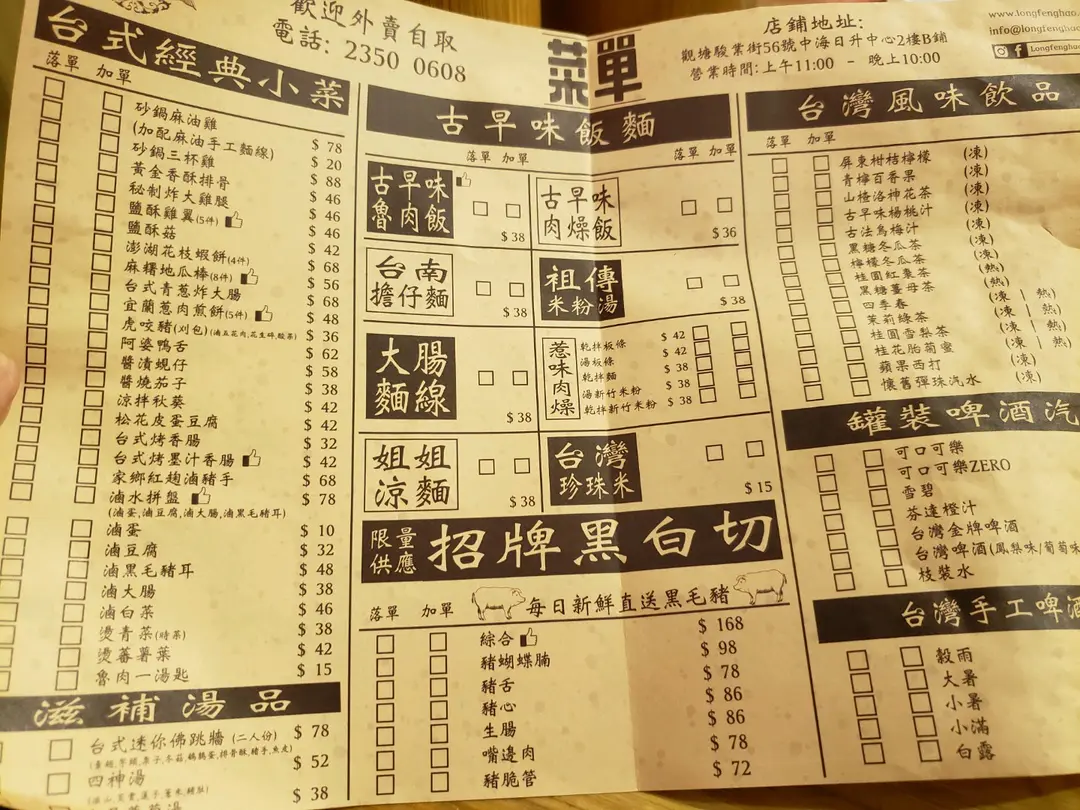 歡迎外賣自取
電話: 2350 0608
菜單
店鋪地址:
觀塘駿業街56號中海日升中心2樓B鋪
營業時間:上午11:00 - 晚上10:00
www.longfenghao.
info@longfenghao
Longfenghao
台式經典小菜
落單 加單
砂鍋麻油雞 $ 78
(加配麻油手工麵線) $ 20
砂鍋三杯雞 $ 88
黃金香酥排骨 $ 46
秘制炸大雞腿 $ 46
鹽酥雞翼(5件) $ 46
鹽酥菇 $ 42
澎湖花枝蝦餅(4件) $ 68
麻糬地瓜棒(8件) $ 56
台式青蔥炸大腸 $ 68
宜蘭蔥肉煎餅(5件) $ 48
虎咬豬(刈包)(滷五花肉,花生碎,酸菜) $ 36
阿婆鴨舌 $ 62
醬漬蜆仔 $ 58
醬燒茄子 $ 38
涼拌秋葵 $ 42
松花皮蛋豆腐 $ 42
台式烤香腸 $ 32
台式烤墨汁香腸 $ 42
家鄉紅麴滷豬手 $ 68
滷水拼盤 $ 78
(滷蛋,滷豆腐,滷大腸,滷黑毛豬耳)
滷蛋 $ 10
滷豆腐 $ 32
滷黑毛豬耳 $ 48
滷大腸 $ 38
滷白菜 $ 46
燙青菜(時菜) $ 38
燙蕃薯葉 $ 42
魯肉一湯匙 $ 15
滋補湯品
台式迷你佛跳牆 (二人份) $ 78
四神湯 $ 52
$ 38
古早味飯麵
落單 加單 落單 加單
古早味
魯肉飯
$ 38
古早味
肉燥飯
$ 36
台南
擔仔麵
$ 38
祖傳
米粉湯
$ 38
大腸
麵線
$ 38
惹味肉燥
乾拌板條 $ 42
湯板條 $ 42
乾拌麵 $ 38
湯新竹米粉 $ 38
乾拌新竹米粉 $ 38
姐姐
涼麵
$ 38
台灣
珍珠米
$ 15
限量
供應
招牌黑白切
落單 加單 每日新鮮直送黑毛豬
綜合 $ 168
豬蝴蝶腩 $ 98
豬舌 $ 78
豬心 $ 86
生腸 $ 86
嘴邊肉 $ 78
豬脆管 $ 72
台灣風味飲品
落單 加單
屏東柑桔檸檬 (凍)
青檸百香果 (凍)
山楂洛神花茶 (凍)
古早味楊桃汁 (凍)
古法烏梅汁 (凍)
黑糖冬瓜茶 (凍)
檸檬冬瓜茶 (凍)
桂圓紅棗茶 (熱)
黑糖薑母茶 (熱)
四季春 (凍 | 熱)
茉莉綠茶 (凍 | 熱)
桂圓雪梨茶 (凍 | 熱)
桂花胎菊蜜 (凍 | 熱)
蘋果西打 (凍)
懷舊彈珠汽水 (凍)
罐裝啤酒汽
可口可樂
可口可樂ZERO
雪碧
芬達橙汁
台灣金牌啤酒
台灣啤酒(鳳梨味/葡萄味
枝裝水
台灣手工啤酒
穀雨
大暑
小暑
小滿
白露